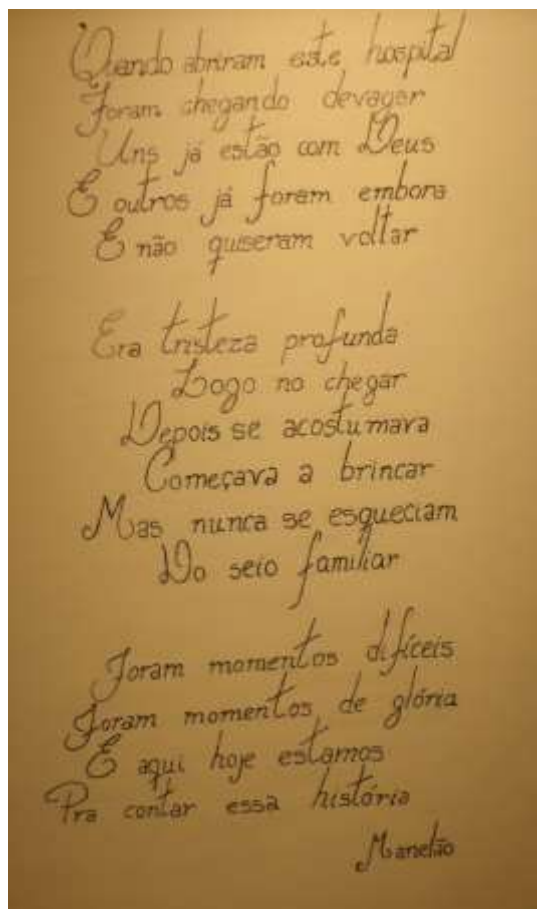 Quando abriram este hospital
Foram chegando devagar
Uns já estão com Deus
E outros já foram embora
E não quiseram voltar
Era tristeza profunda
Logo no chegar
Depois se acostumava
Começava a brincar
Mas nunca se esqueciam
Do seio familiar
Foram momentos difíceis
Foram momentos de glória
E aqui hoje estamos
Pra contar essa história
Manelão